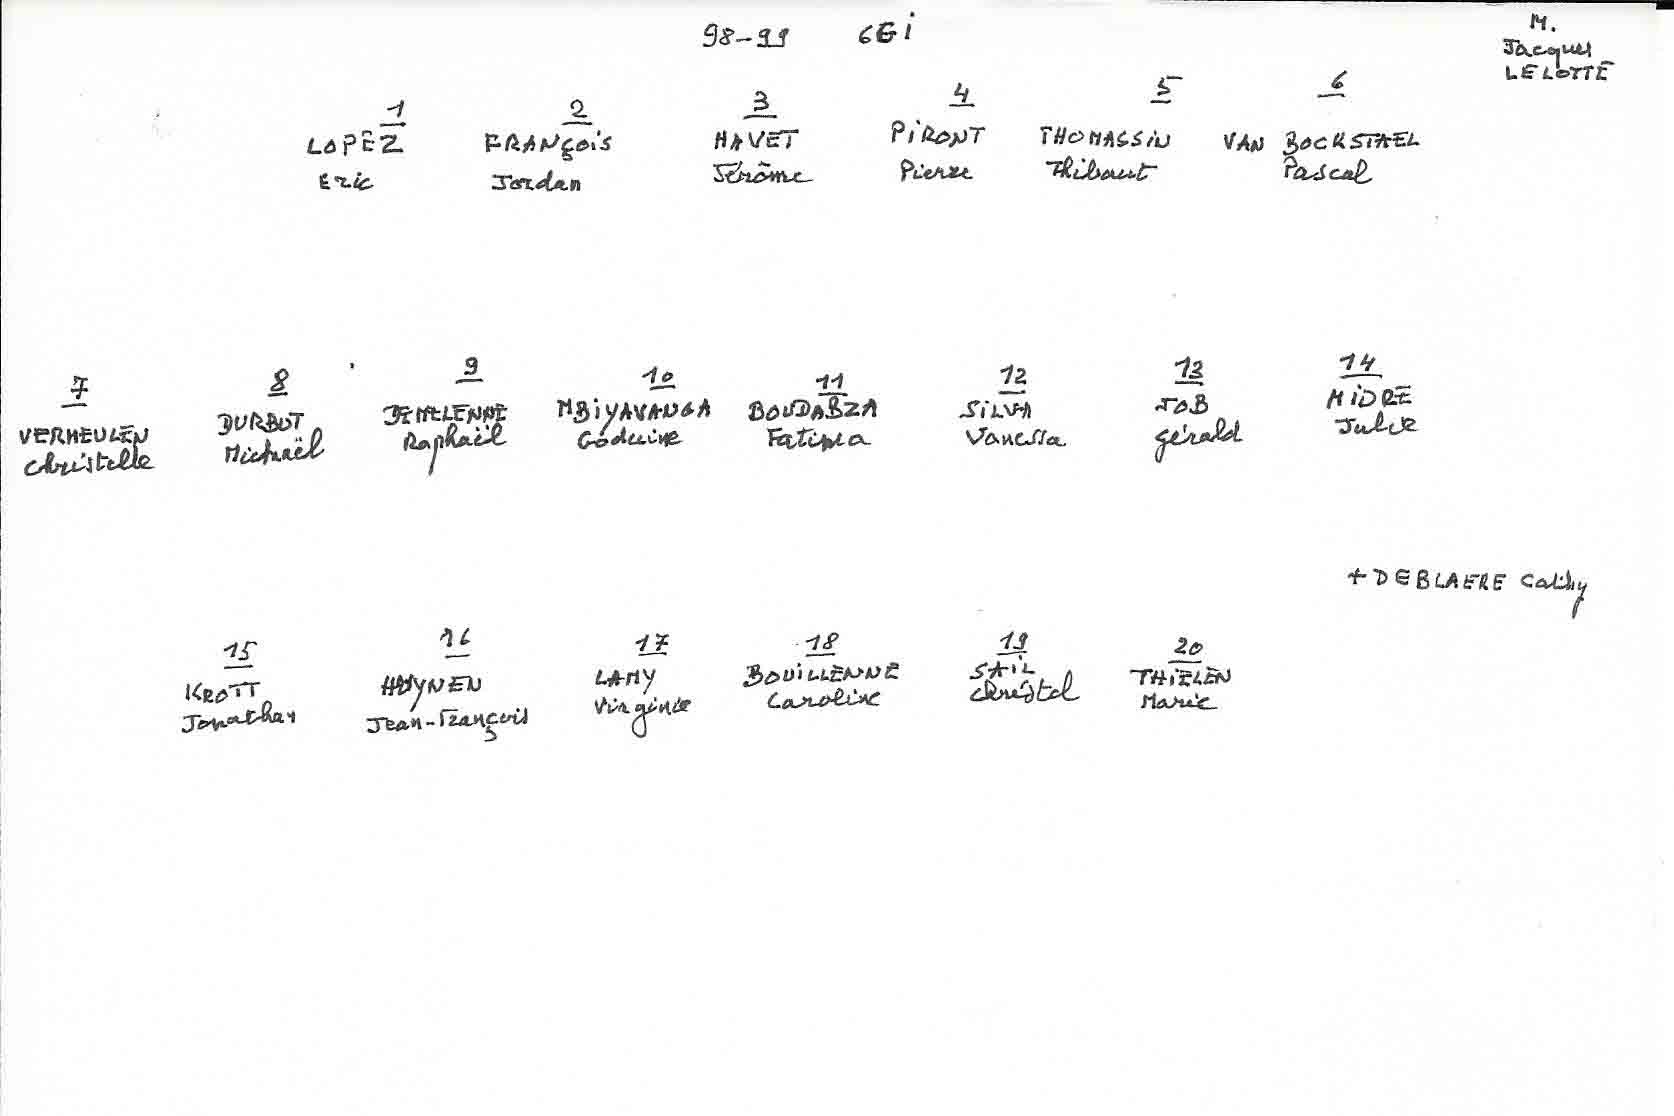 98-99 6Gi
M.
Jacques
LELOTTE
1 2 3 4 5 6
LOPEZ FRANçois HAVET PiRONT THOMASSiN VAN BOCKSTAEL
Eric Jordan Jérôme Pierre Thibaut Pascal
7 8 9 10 11 12 13 14
VERMEULEN DURBUT MBiYAVANGA BOUDABZA SiLVA JOB MiDRE
Christelle Michaël Raphaël Goduine Fatima Vanessa Gérald Julie
+ DEBLAERE Cathy
15 16 17 18 19 20
KROTT HUYNEN LAMY BOUiLLENNE SAiL THiELEN
Jonathan Jean-François Virginie Caroline Christel Marie